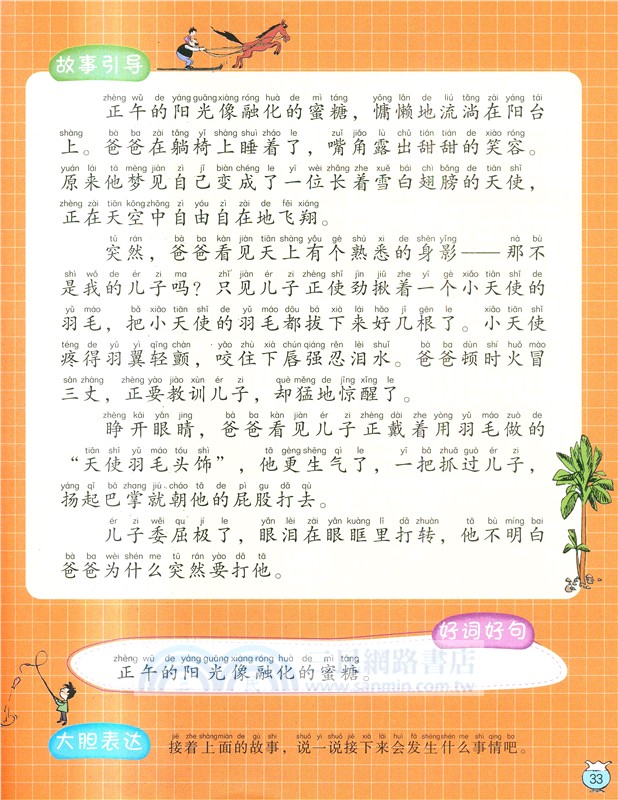 故事引导
zhèng wǔ de yáng guāng xiàng róng huà de mì táng yōng lǎn de liú tǎng zài yáng tái
正午的阳光像融化的蜜糖，慵懒地流淌在阳台
shàng bà ba zài tǎng yǐ shàng shuì zháo le zuǐ jiǎo lù chū tián tián de xiào róng
上。爸爸在躺椅上睡着了，嘴角露出甜甜的笑容。
yuán lái tā mèng jiàn zì jǐ biàn chéng le yí wèi zhǎng zhe xuě bái chì bǎng de tiān shǐ
原来他梦见自己变成了一位长着雪白翅膀的天使，
zhèng zài tiān kōng zhōng zì yóu zì zài de fēi xiáng
正在天空中自由自在地飞翔。
tū rán bà ba kàn jiàn tiān shàng yǒu gè shú xi de shēn yǐng nà bù
突然，爸爸看见天上有个熟悉的身影——那不
shì wǒ de ér zi ma zhǐ jiàn ér zi zhèng shǐ jìn jiū zhe yí gè xiǎo tiān shǐ de
是我的儿子吗？只见儿子正使劲揪着一个小天使的
yǔ máo bǎ xiǎo tiān shǐ de yǔ máo dōu bá xià lái hǎo jǐ gēn le xiǎo tiān shǐ
羽毛，把小天使的羽毛都拔下来好几根了。小天使
téng de yǔ yì qīng chàn yǎo zhù xià chún qiáng rěn lèi shuǐ bà ba dùn shí huǒ mào
疼得羽翼轻颤，咬住下唇强忍泪水。爸爸顿时火冒
sān zhàng zhèng yào jiào xùn ér zi què měng de jīng xǐng le
三丈，正要教训儿子，却猛地惊醒了。
zhēng kāi yǎn jing bà ba kàn jiàn ér zi zhèng dài zhe yòng yǔ máo zuò de
睁开眼睛，爸爸看见儿子正戴着用羽毛做的
tiān shǐ yǔ máo tóu shì tā gèng shēng qì le yì bǎ zhuā guò ér zi
“天使羽毛头饰”，他更生气了，一把抓过儿子，
yáng qǐ bā zhang jiù cháo tā de pì gu dǎ qù
扬起巴掌就朝他的屁股打去。
ér zi wěi qu jí le yǎn lèi zài yǎn kuàng lǐ dǎ zhuàn tā bù míng bai
儿子委屈极了，眼泪在眼眶里打转，他不明白
bà ba wèi shén me tū rán yào dǎ tā
爸爸为什么突然要打他。
好词好句
zhèng wǔ de yáng guāng xiàng róng huà de mì táng
正午的阳光像融化的蜜糖。
三民網路書店
www.sanmin.com.tw
大胆表达
jiē zhe shàng miàn de gù shi shuō yi shuō jiē xià lái huì fā shēng shén me shì qing ba
接着上面的故事，说一说接下来会发生什么事情吧。
33